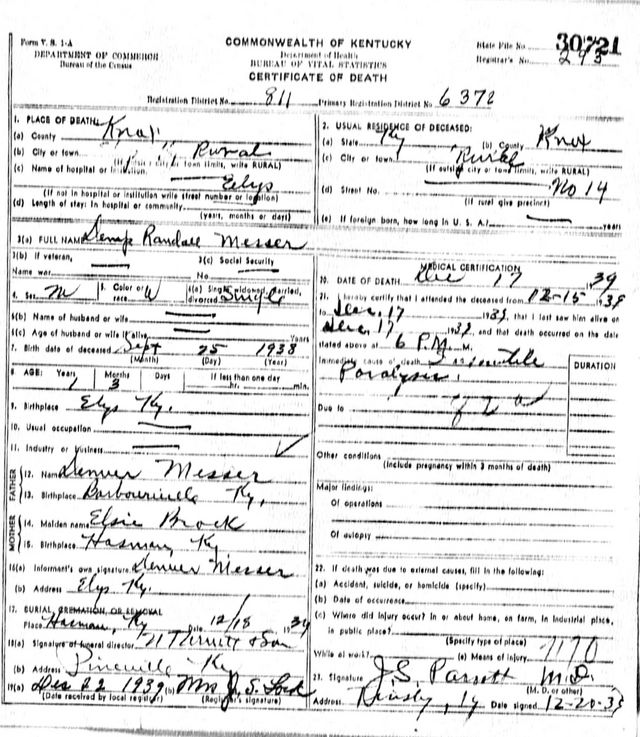 Form V. S. 1-A
DEPARTMENT OF COMMERCE
Bureau of the Census
COMMONWEALTH OF KENTUCKY
Department of Health
BUREAU OF VITAL STATISTICS
CERTIFICATE OF DEATH
State File No. 30721
Registrar's No. 293
Registration District No. 811 Primary Registration District No. 6372
1. PLACE OF DEATH:
(a) County Knox
(b) City or town Rural
(c) Name of hospital or institution. Elys
(If not in hospital or institution write street number or location)
(d) Length of stay: In hospital or community
(years, months or days)
2. USUAL RESIDENCE OF DECEASED:
(a) State Ky (b) County Knox
(c) City or town Rural
(If outside city or town limits, write RURAL)
(d) Street No. No 14
(If rural give precinct)
(e) If foreign born, how long in U. S. A.? years
3(a) FULL NAME Randall Messer
3(b) If veteran, 3(c) Social Security
Name war No.
4. Sex M 5. Color or race W 6(a) Single, widowed, married, divorced Single
6(b) Name of husband or wife
6(c) Age of husband or wife if alive Years
7. Birth date of deceased Sept 25 1938
(Month) (Day) (Year)
8 AGE: Years Months Days If less than one day
1 3 hr. min.
9. Birthplace Elys Ky.
10. Usual occupation
11. Industry or business
FATHER
12. Name Denver Messer
13. Birthplace Barbourville Ky,
MOTHER
14. Maiden name Elsie Brock
15. Birthplace Ky
16(a) Informant's own signature Denver Messer
(b) Address Elys Ky.
17. BURIAL, CREMATION, OR REMOVAL
Place Ky Date 12/18 1939
18(a) Signature of funeral director & Son
(b) Address Pineville Ky
19(a) Dec 22 1939 (b) Mrs J. S.
(Date received by local registrar) (Registrar's signature)
MEDICAL CERTIFICATION
20. DATE OF DEATH Dec 17 1939
21. I hereby certify that I attended the deceased from 12-15 1939
to Dec. 17 1939, that I last saw him alive on
Dec. 17 1939, and that death occurred on the date
stated above at 6 P.M. M.
Immediate cause of death Infantile
Paralysis
DURATION
Due to
Other conditions
(Include pregnancy within 3 months of death)
Major findings:
Of operations
Of autopsy
22. If death was due to external causes, fill in the following:
(a) Accident, suicide, or homicide (specify)
(b) Date of occurrence
(c) Where did injury occur? In or about home, on farm, in industrial place,
in public place?
(Specify type of place)
While at work? (e) Means of injury
23. Signature J. S. Parrott M.D.
(M. D. or other)
Address Ky Date signed 12-20-39